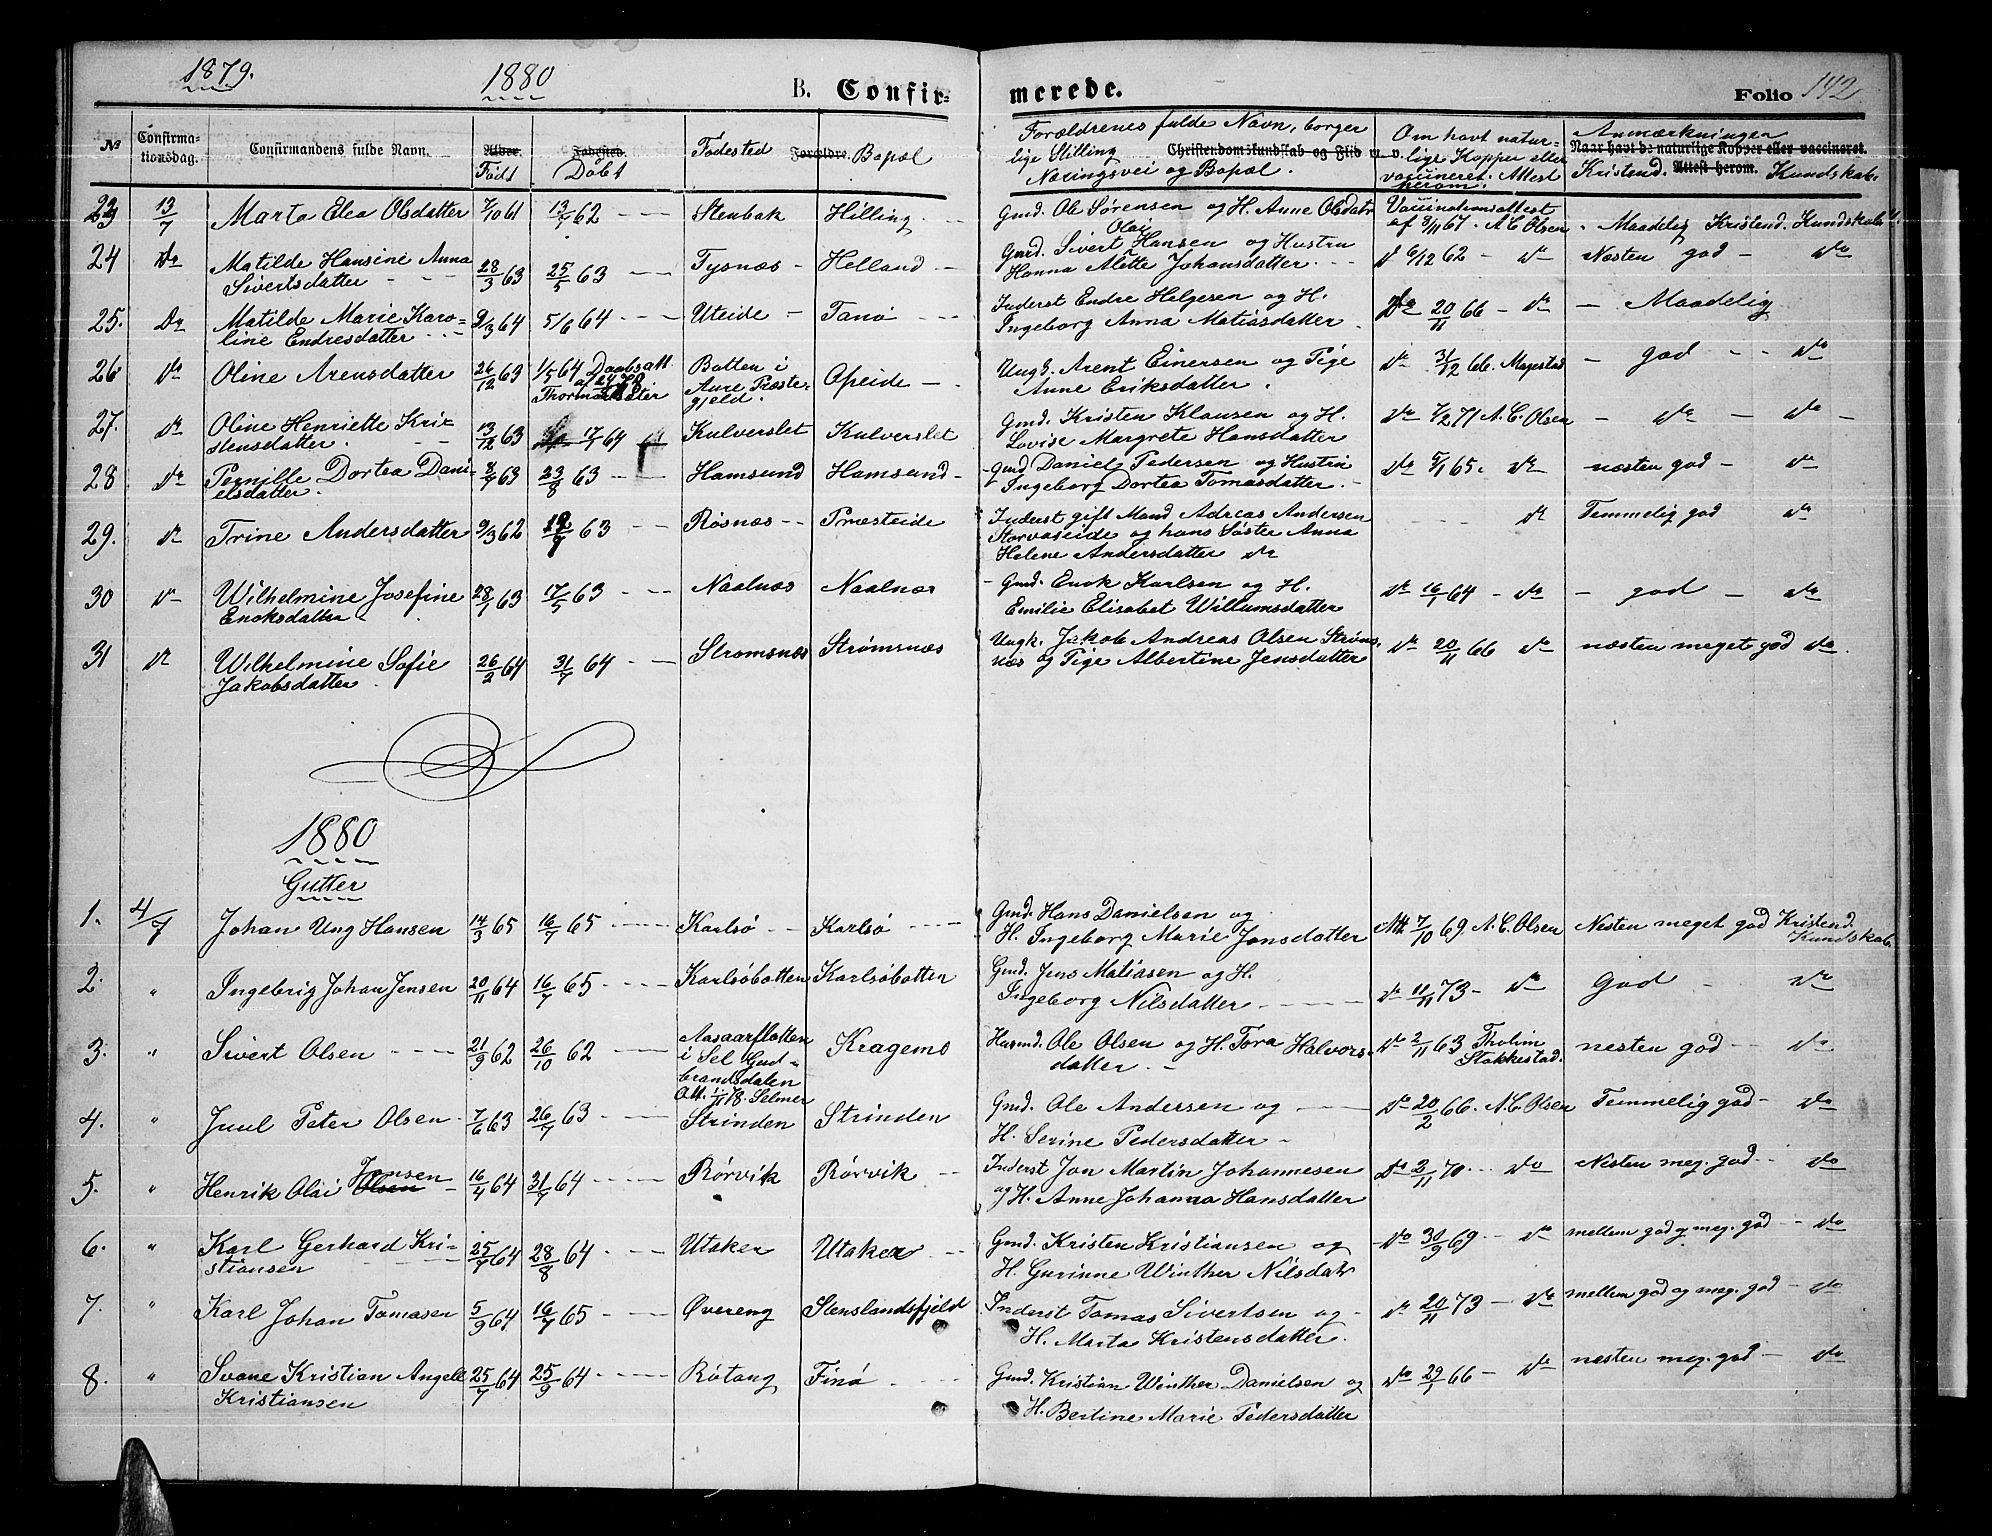 1879. 1880 B. Confir- merede. Folio 142
№ Confirma-tionsdag. Confirmandens fulde Navn. Alder. Født Fødested. Døbt Fødested Forældre. Bopæl Forældrenes fulde Navn, borger
lige Stilling Christendomskundskab og Flid m. v.
Næringsvei og Bopæl. Om havt natur-
lige Kopper eller
vaccineret. Attest
herom. Anmærkninger
Naar havt de naturlige Kopper eller vaccineret.
Kristend. Attest herom. Kundskab.
23 13/7 Marta Elea Olsdatter 7/10 61 13/7 62 Stenbak Hilling Gmd. Ole Sørensen og H. Anne Olsdatr Vaccinationsattest
af 8/11 67. A.C. Olsen Maadelig Kristend. Kundskab
24 Do Matilde Hansine Anna
Sivertsdatter 28/3 63 25/5 63 Tysnæs Helland Gmd. Sivert Olai Hansen og Hustru
Hanna Alette Johansdatter do 6/12 62 - do Næsten god - do
25. Do Matilde Marie Karo-
line Endresdatter 9/3 64 5/6 64 Uteide Tanø Inderst Endre Helgesen og H.
Ingeborg Anna Matiasdatter Do 20/11 66 - do - Maadelig
26 do Oline Arensdatter 26/12 63 1/5 64 Daabsatt. Botten i
Aure Præste-
gjeld. Opeide Ungk. Arent Einersen og Pige
Anne Eriksdatter do 31/12 66. - god - do
27. do Oline Henriette Kri-
stensdatter. 13/12 63 17/7 64 Kulverslet Kulverslet Gmd. Kristen Klausen og H.
Lovise Margrete Hansdatter do 1/2 71 A.C. Olsen - do - do -
28 do Pernille Dortea Dani-
elsdatter. 8/7 63 23/8 63 Hamsund Hamsund Gmd Daniel Pedersen og Hustru
Ingeborg Dortea Tomasdatter. do 5/1 65. do næsten god - do
29. do Trine Andersdatter 9/3 62 63 Røsnæs Præsteide Inderst gift Mand Adreas Andersen
Storvaseide og hans Søster Anna
Helene Andersdatter do do Temmelig god do
30 do Wilhelmine Josefine
Enoksdatter 28/1 63 17/5 63 Naalnæs Naalnæs Gmd. Enok Karlsen og H.
Emilie Elisabet Willumsdatter do 16/1 64 - do - god - do
31 do Wilhelmine Sofie
Jakobsdatter 26/2 64 31/7 64 Strømsnæs Strømsnæs Ungk. Jakob Andreas Olsen Strøms-
næs og Pige Albertine Jensdatter do 20/11 66 do næsten meget god do.
1880
Gutter
1. 4/7 Johan Ung Hansen 14/3 65 16/7 65 Karlsø Karlsø Gmd. Hans Danielsen og
H. Ingeborg Marie Jonsdatter Att 7/10 69. A.C. Olsen Nesten meget god Kristend.
Kundskab.
2. " Ingebrig Johan Jensen 20/11 64 16/7 65 Karlsøbotten Karlsøbotten Gmd. Jens Matiasen og H.
Ingeborg Nilsdatter do 11/11 73 - do God - do
3. " Sivert Olsen 21/9 62 26/10 62 Aasaarflotten
i Sel Gud-
brandsdalen
Att. 1/11 78. Selmer Kragemo Husmd. Ole Olsen og H. Tora Halvors-
datter. do 2/11 63 Tholim
Stokkestad. nesten god - do
4. " Juul Peter Olsen 7/6 63 26/7 63 Strinden Strinden Gmd. Ole Andersen og
H. Serine Pedersdatter - do 20/2 66. A.C. Olsen Temmelig god - do
5. " Henrik Olai Olsen Jonsen 16/4 64 31/7 64 Rørvik Rørvik Inderst Jon Martin Johannesen
og H. Anne Johanna Hansdatter do 2/11 70 - do Nesten meg. god - do
6. " Karl Gerhard Kri-
stiansen 25/7 64 28/8 64 Utaker Utaker Gmd. Kristen Kristiansen og
H. Gurinne Winther Nilsdatr do 30/9 69 - do mellem god og meg. god - do
7. " Karl Johan Tomasen 5/9 64 16/7 65 Øvereng Stenslandsfjeld Inderst Tomas Sivertsen og
H. Marta Kristensdatter. do 20/11 73 - do mellem god og meg. god - do
8. " Svane Kristian Angell
Kristiansen 25/7 64 25/9 64 Røtang Finø Gmd. Kristian Winther Danielsen og
H. Bertine Marie Pedersdatter do 29/1 66 - do næsten meg. god - do